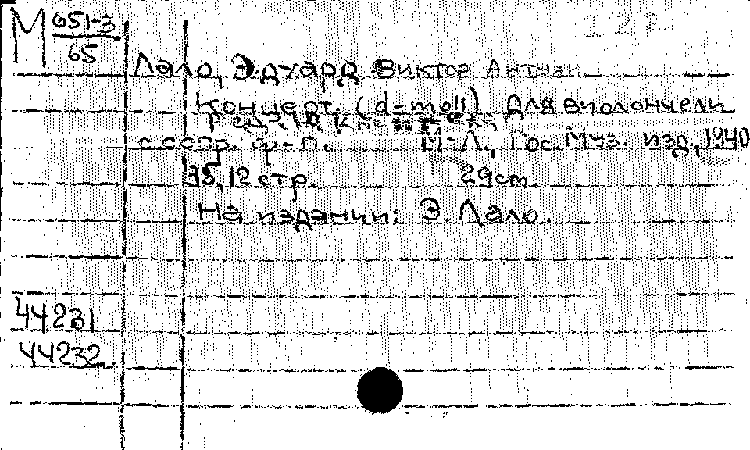 М 651-3
65
Лало, Эдуард Виктор Антуан
Концерт (d-moll) для виолончели
с сопр. ф-п. М-Л., Гос. Муз. изд, 1940
35, 12 стр. 29 cm.
На издании: Э. Лало.
44231
44232